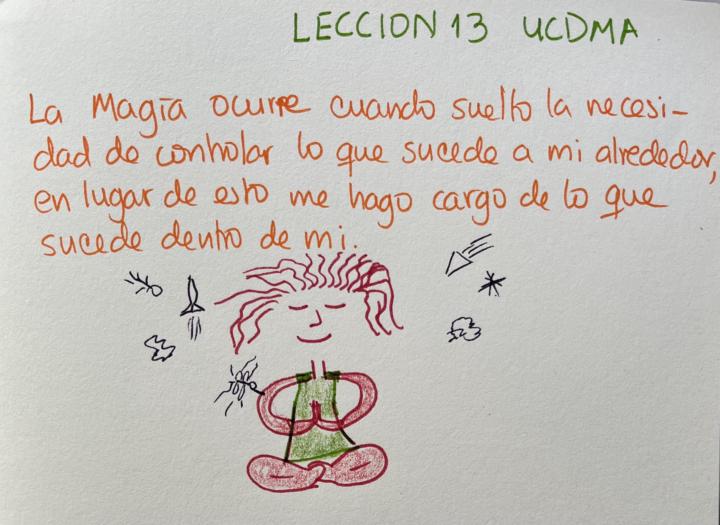 LECCION 13 UCDMA
La Magia ocurre cuando suelto la necesi-
dad de controlar lo que sucede a mi alrededor,
en lugar de esto me hago cargo de lo que
sucede dentro de mi.